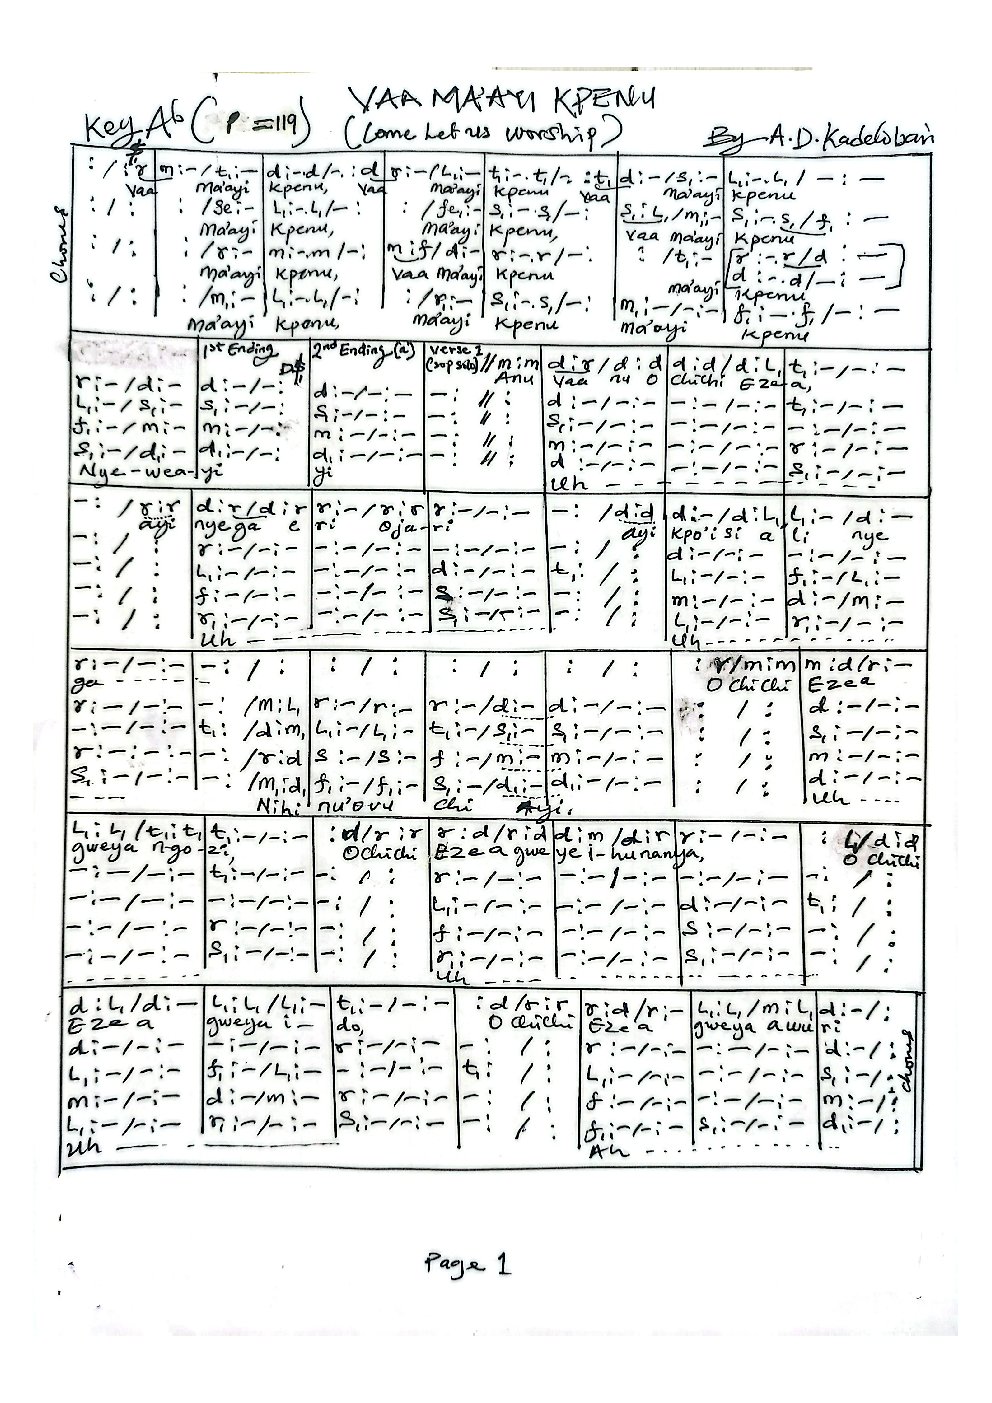 VAA MA'AYI KPENU
Key Ab (P = 119) (Come Let us worship) By A.D. Kadelobari
Chorus
: / : r | m : - / t₁ : - | d : - . d / - . : d | r : - / L₁ : - | t₁ : - . t₁ / - : t₁ | d : - / s₁ : - | L₁ : - . L₁ / - : -
Vaa Ma'ayi Kpenu, Vaa Ma'ayi Kpenu Vaa Ma'ayi Kpenu
: / : | : / se₁ : - | L₁ : - . L₁ / - : | : / fe₁ : - | s₁ : - . s₁ / - : | s₁ : L₁ / m₁ : - | s₁ : - . s₁ / f₁ : -
Ma'ayi Kpenu, Ma'ayi Kpenu, Vaa Ma'ayi Kpenu
: / : | : / r : - | m : - . m / - : | m : f / d : - | r : - . r / - : | : / t₁ : - | r : - . r / d : -
d : - . d / - : -
Ma'ayi Kpenu, Vaa Ma'ayi Kpenu Ma'ayi Kpenu
: / : | : / m₁ : - | L₁ : - . L₁ / - : | : / r₁ : - | s₁ : - . s₁ / - : | m₁ : - / - : - | f₁ : - . f₁ / - : -
Ma'ayi Kpenu, Ma'ayi Kpenu Ma'ayi Kpenu
1st Ending D$ 2nd Ending (a) Verse 1
(sop solo) // m : m | d : r / d : d | d : d / d : L₁ | t₁ : - / - : -
Anu Vaa nu O Chichi Eze-a,
r : - / d : - | d : - / - : | d : - / - : - | - : // : | d : - / - : - | - : - / - : - | t₁ : - / - : -
L₁ : - / s₁ : - | s₁ : - / - : | s₁ : - / - : - | - : // : | s₁ : - / - : - | - : - / - : - | - : - / - : -
f₁ : - / m : - | m : - / - : | m : - / - : - | - : // : | m : - / - : - | - : - / - : - | r : - / - : -
s₁ : - / d₁ : - | d₁ : - / - : | d₁ : - / - : - | - : // : | d : - / - : - | - : - / - : - | s₁ : - / - : -
Nye-wea-yi yi Uh
- : / r : r | d : r / d : r | r : - / r : r | r : - / - : - | - : / d : d | d : - / d : L₁ | L₁ : - / d : -
ayi nyega e ri Oja-ri ayi kpo'i si a' li nye
- : / : | r : - / - : - | - : - / - : - | - : - / - : - | - : / : | d : - / - : - | - : - / - : -
- : / : | L₁ : - / - : - | - : - / - : - | d : - / - : - | t₁ : / : | L₁ : - / - : - | f₁ : - / L₁ : -
- : / : | f : - / - : - | - : - / - : - | s : - / - : - | - : / : | m : - / - : - | d : - / m : -
- : / : | r₁ : - / - : - | - : - / - : - | s₁ : - / - : - | - : / : | L₁ : - / - : - | r₁ : - / - : -
Uh Uh
r : - / - : - | - : / : | : / : | : / : | : / : | : r / m : m | m : d / r : -
ga O Chichi Ezea
r : - / - : - | - : / m : L₁ | r : - / r : - | r : - / d : - | d : - / - : - | : / : | d : - / - : -
- : - / - : - | t₁ : / d : m₁ | L₁ : - / L₁ : - | t₁ : - / s₁ : - | s₁ : - / - : - | : / : | s₁ : - / - : -
r : - : - : - | - : / r : d | s : - / s : - | f : - / m : - | m : - / - : - | : / : | m : - / - : -
s₁ : - / - : - | - : / m₁ : d₁ | f₁ : - / f₁ : - | s₁ : - / d₁ : - | d₁ : - / - : - | : / : | d : - / - : -
Nihi nu'ovu chi Ayi, Uh
L₁ : L₁ / t₁ : t₁ | t₁ : - / - : - | : d / r : r | r : d / r : d | d : m / d : r | r : - / - : - | : L₁ / d : d
gweya ngo-zi, O Chichi Eze a gwe ye i-hunanya, O Chichi
- : - / - : - | t₁ : - / - : - | - : / : | r : - / - : - | - : - / - : - | - : - / - : - | - : / :
- : - / - : - | - : - / - : - | - : / : | L₁ : - / - : - | - : - / - : - | d : - / - : - | t₁ : / :
- : - / - : - | r : - / - : - | - : / : | f : - / - : - | - : - / - : - | s : - / - : - | - : / :
- : - / - : - | s₁ : - / - : - | - : / : | r₁ : - / - : - | - : - / - : - | s₁ : - / - : - | - : / :
Uh
d : L₁ / d : - | L₁ : L₁ / L₁ : - | t₁ : - / - : - | : d / r : r | r : d / r : - | L₁ : L₁ / m : L₁ | d : - / :
Eze a gweya i- do, O Chichi Eze a gweya awu ri
d : - / - : - | - : - / - : - | r : - / - : - | - : / : | r : - / - : - | - : - / - : - | d : - / :
L₁ : - / - : - | f₁ : - / L₁ : - | - : - / - : - | t₁ : / : | L₁ : - / - : - | - : - / - : - | s₁ : - / :
m : - / - : - | d : - / m : - | r : - / - : - | - : / : | f : - / - : - | - : - / - : - | m : - / :
L₁ : - / - : - | r₁ : - / - : - | s₁ : - / - : - | - : / : | f₁ : - / - : - | s₁ : - / - : - | d₁ : - / :
Uh Ah
Chorus
Page 1